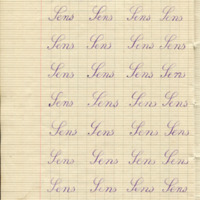 Sons Sons Sons Sons
Sons Sons Sons Sons
Sons Sons Sons Sons
Sons Sons Sons Sons
Sons Sons Sons Sons
Sons Sons Sons Sons
Sons Sons Sons Sons